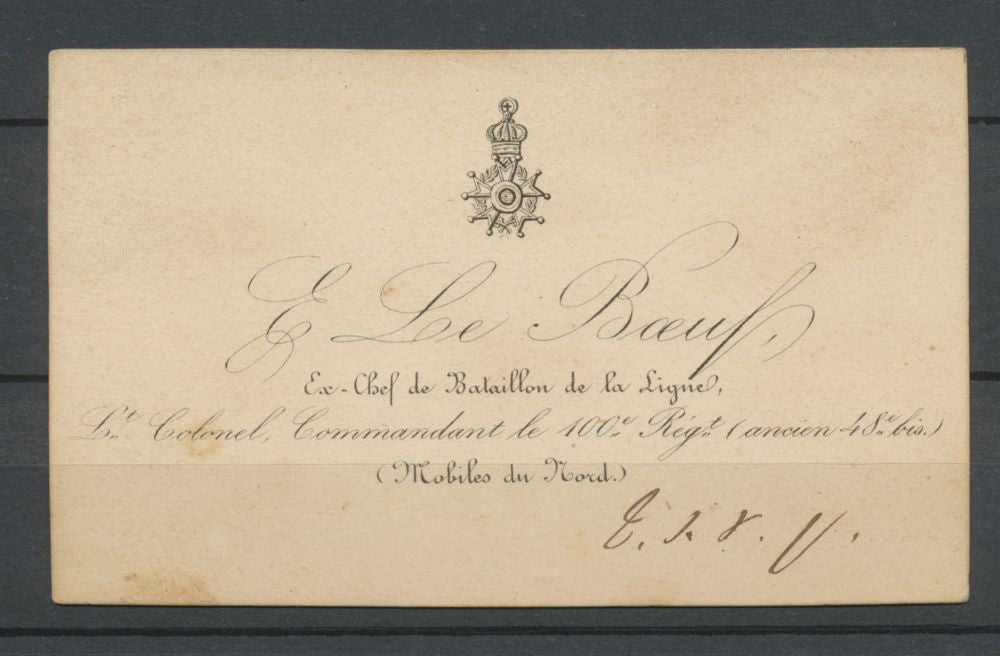 E Le Bœuf,
Ex-Chef de Bataillon de la Ligne,
Lt. Colonel, Commandant le 100e Régt. (ancien 48e bis.)
(Mobiles du Nord.)